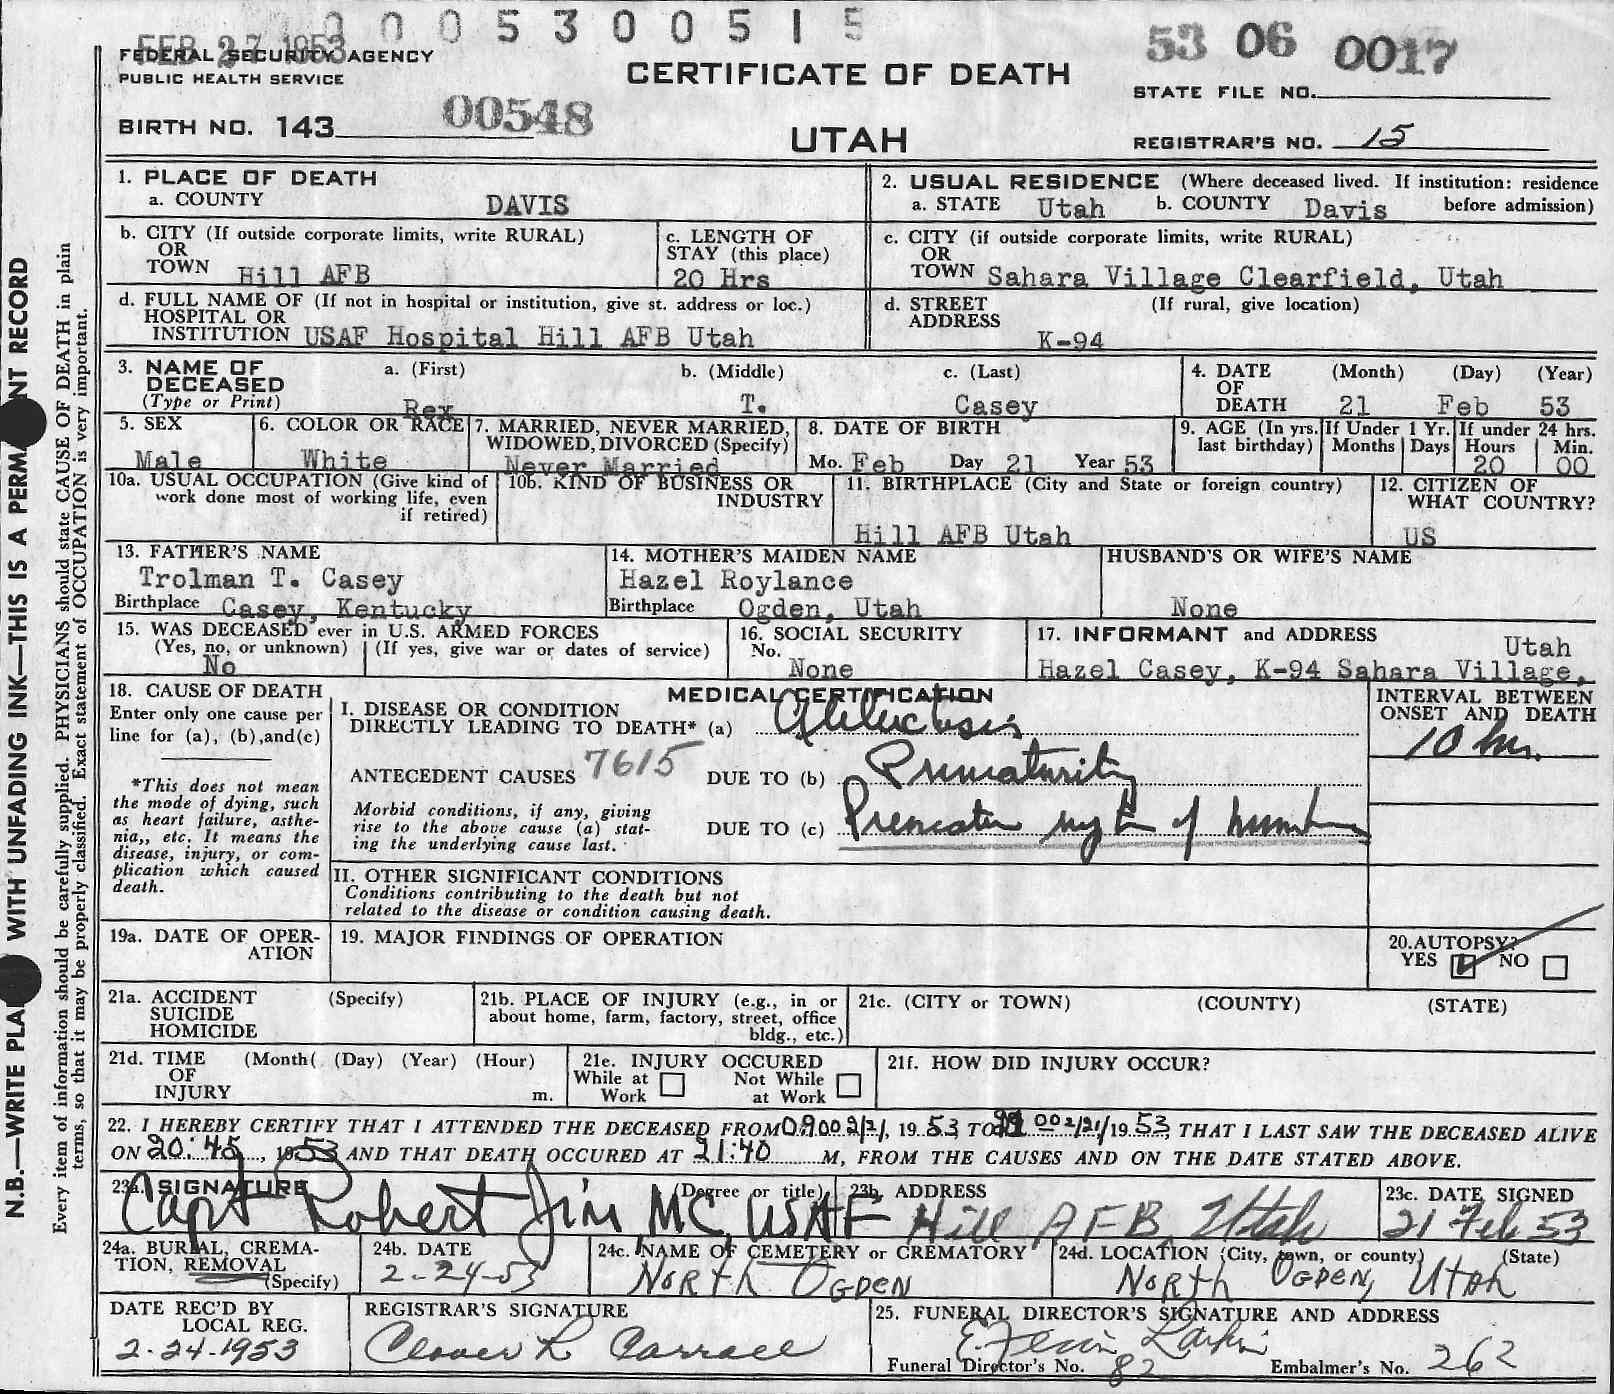 0 0 0 5 3 0 0 5 1 5
FEB 27 1953
53 06 0017
FEDERAL SECURITY AGENCY
PUBLIC HEALTH SERVICE
CERTIFICATE OF DEATH
STATE FILE NO.
BIRTH NO. 143 00548
UTAH
REGISTRAR'S NO. 15
1. PLACE OF DEATH
a. COUNTY DAVIS
2. USUAL RESIDENCE (Where deceased lived. If institution: residence before admission)
a. STATE Utah b. COUNTY Davis
b. CITY (If outside corporate limits, write RURAL)
OR
TOWN Hill AFB
c. LENGTH OF
STAY (this place)
20 Hrs
c. CITY (if outside corporate limits, write RURAL)
OR
TOWN Sahara Village Clearfield, Utah
d. FULL NAME OF (If not in hospital or institution, give st. address or loc.)
HOSPITAL OR
INSTITUTION USAF Hospital Hill AFB Utah
d. STREET (If rural, give location)
ADDRESS
K-94
3. NAME OF
DECEASED
(Type or Print)
a. (First)
Rex
b. (Middle)
T.
c. (Last)
Casey
4. DATE (Month) (Day) (Year)
OF
DEATH 21 Feb 53
5. SEX
Male
6. COLOR OR RACE
White
7. MARRIED, NEVER MARRIED,
WIDOWED, DIVORCED (Specify)
Never Married
8. DATE OF BIRTH
Mo. Feb Day 21 Year 53
9. AGE (In yrs. last birthday)
If Under 1 Yr.
Months Days
If under 24 hrs.
Hours Min.
20 00
10a. USUAL OCCUPATION (Give kind of
work done most of working life, even
if retired)
10b. KIND OF BUSINESS OR
INDUSTRY
11. BIRTHPLACE (City and State or foreign country)
Hill AFB Utah
12. CITIZEN OF
WHAT COUNTRY?
US
13. FATHER'S NAME
Trolman T. Casey
Birthplace Casey, Kentucky
14. MOTHER'S MAIDEN NAME
Hazel Roylance
Birthplace Ogden, Utah
HUSBAND'S OR WIFE'S NAME
None
15. WAS DECEASED ever in U.S. ARMED FORCES
(Yes, no, or unknown) (If yes, give war or dates of service)
No
16. SOCIAL SECURITY
No.
None
17. INFORMANT and ADDRESS
Utah
Hazel Casey, K-94 Sahara Village,
18. CAUSE OF DEATH
Enter only one cause per
line for (a), (b),and(c)
*This does not mean
the mode of dying, such
as heart failure, asthe-
nia,, etc. It means the
disease, injury, or com-
plication which caused
death.
MEDICAL CERTIFICATION
I. DISEASE OR CONDITION
DIRECTLY LEADING TO DEATH* (a) Atelectasis
ANTECEDENT CAUSES 7615 DUE TO (b) Prematurity
Morbid conditions, if any, giving
rise to the above cause (a) stat-
ing the underlying cause last.
DUE TO (c) Premature of
INTERVAL BETWEEN
ONSET AND DEATH
10 hrs.
II. OTHER SIGNIFICANT CONDITIONS
Conditions contributing to the death but not
related to the disease or condition causing death.
19a. DATE OF OPER-
ATION
19. MAJOR FINDINGS OF OPERATION
20.AUTOPSY?
YES NO
21a. ACCIDENT (Specify)
SUICIDE
HOMICIDE
21b. PLACE OF INJURY (e.g., in or
about home, farm, factory, street, office
bldg., etc.)
21c. (CITY or TOWN) (COUNTY) (STATE)
21d. TIME (Month( (Day) (Year) (Hour)
OF
INJURY m.
21e. INJURY OCCURED
While at Work Not While at Work
21f. HOW DID INJURY OCCUR?
22. I HEREBY CERTIFY THAT I ATTENDED THE DECEASED FROM 0900 2/21, 19 53, TO 00 2/21/ 19 53, THAT I LAST SAW THE DECEASED ALIVE
ON 20:45, 19 53 AND THAT DEATH OCCURED AT 21:40 M, FROM THE CAUSES AND ON THE DATE STATED ABOVE.
23a. SIGNATURE (Degree or title)
Capt Robert Jim MC, USAF
23b. ADDRESS
Hill AFB, Utah
23c. DATE SIGNED
21 Feb 53
24a. BURIAL, CREMA-
TION, REMOVAL
(Specify)
24b. DATE
2-24-53
24c. NAME OF CEMETERY or CREMATORY
NORTH OGDEN
24d. LOCATION (City, town, or county) (State)
NORTH OGDEN, UTAH
DATE REC'D BY
LOCAL REG.
2-24-1953
REGISTRAR'S SIGNATURE
25. FUNERAL DIRECTOR'S SIGNATURE AND ADDRESS
Larkin
Funeral Director's No. 82 Embalmer's No. 262
N.B.—WRITE PLA WITH UNFADING INK—THIS IS A PERMA NT RECORD
Every item of information should be carefully supplied. PHYSICIANS should state CAUSE OF DEATH in plain
terms, so that it may be properly classified. Exact statement of OCCUPATION is very important.